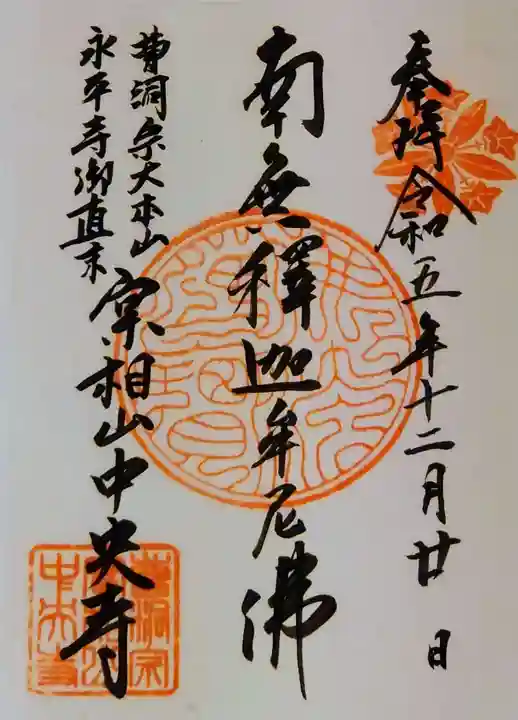 奉拝 令和五年十二月廿日
南無釋迦牟尼佛
曹洞宗大本山
永平寺御直末
實相山中央寺
曹洞宗
中央寺